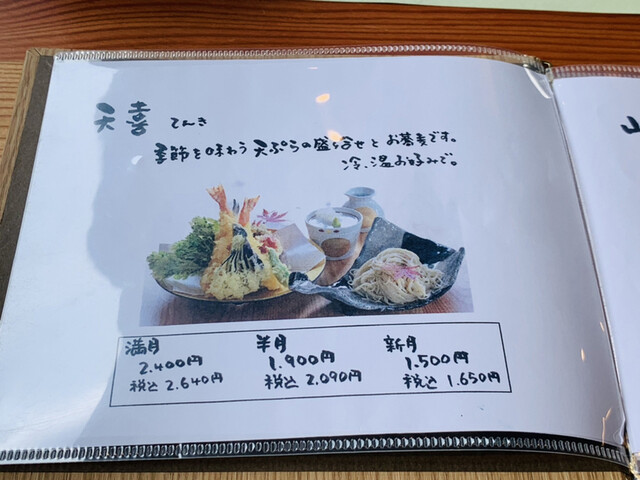 天喜 てんき
季節を味わう天ぷらの盛り合せとお蕎麦です。
冷、温お好みで。
満月 半月 新月
2.400円 1.900円 1.500円
税込 2.640円 税込 2.090円 税込 1.650円